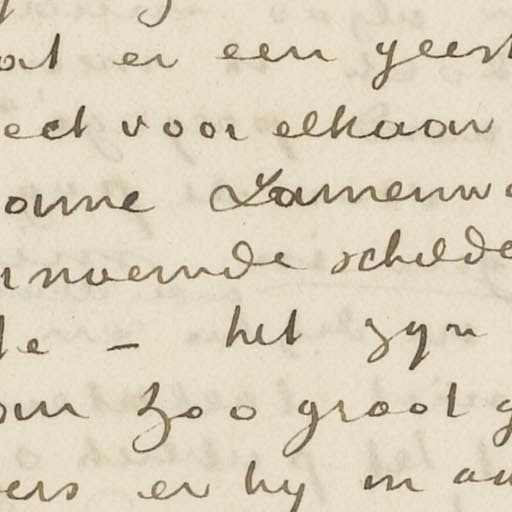 at er een geest
ect voor elkaar
onne Zamenw
rnoemde schilde
te – het zyn
om zoo groot g
ers er hy in au